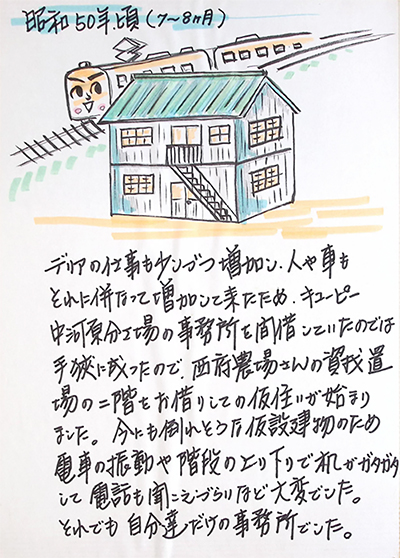 昭和50年頃(7〜8ヵ月)
デリアの仕事も少しづつ増加し、人や車も
それに併なって増加して来たため、キューピー
中河原分工場の事務所を間借していたのでは
手狭に成ったので、西府農場さんの資材置
場の二階をお借りしての仮住いが始まり
ました。今にも倒れそうな仮設建物のため
電車の振動や階段の上り下りで机がガタガタ
して電話も聞こえづらいなど大変でした。
それでも自分達だけの事務所でした。